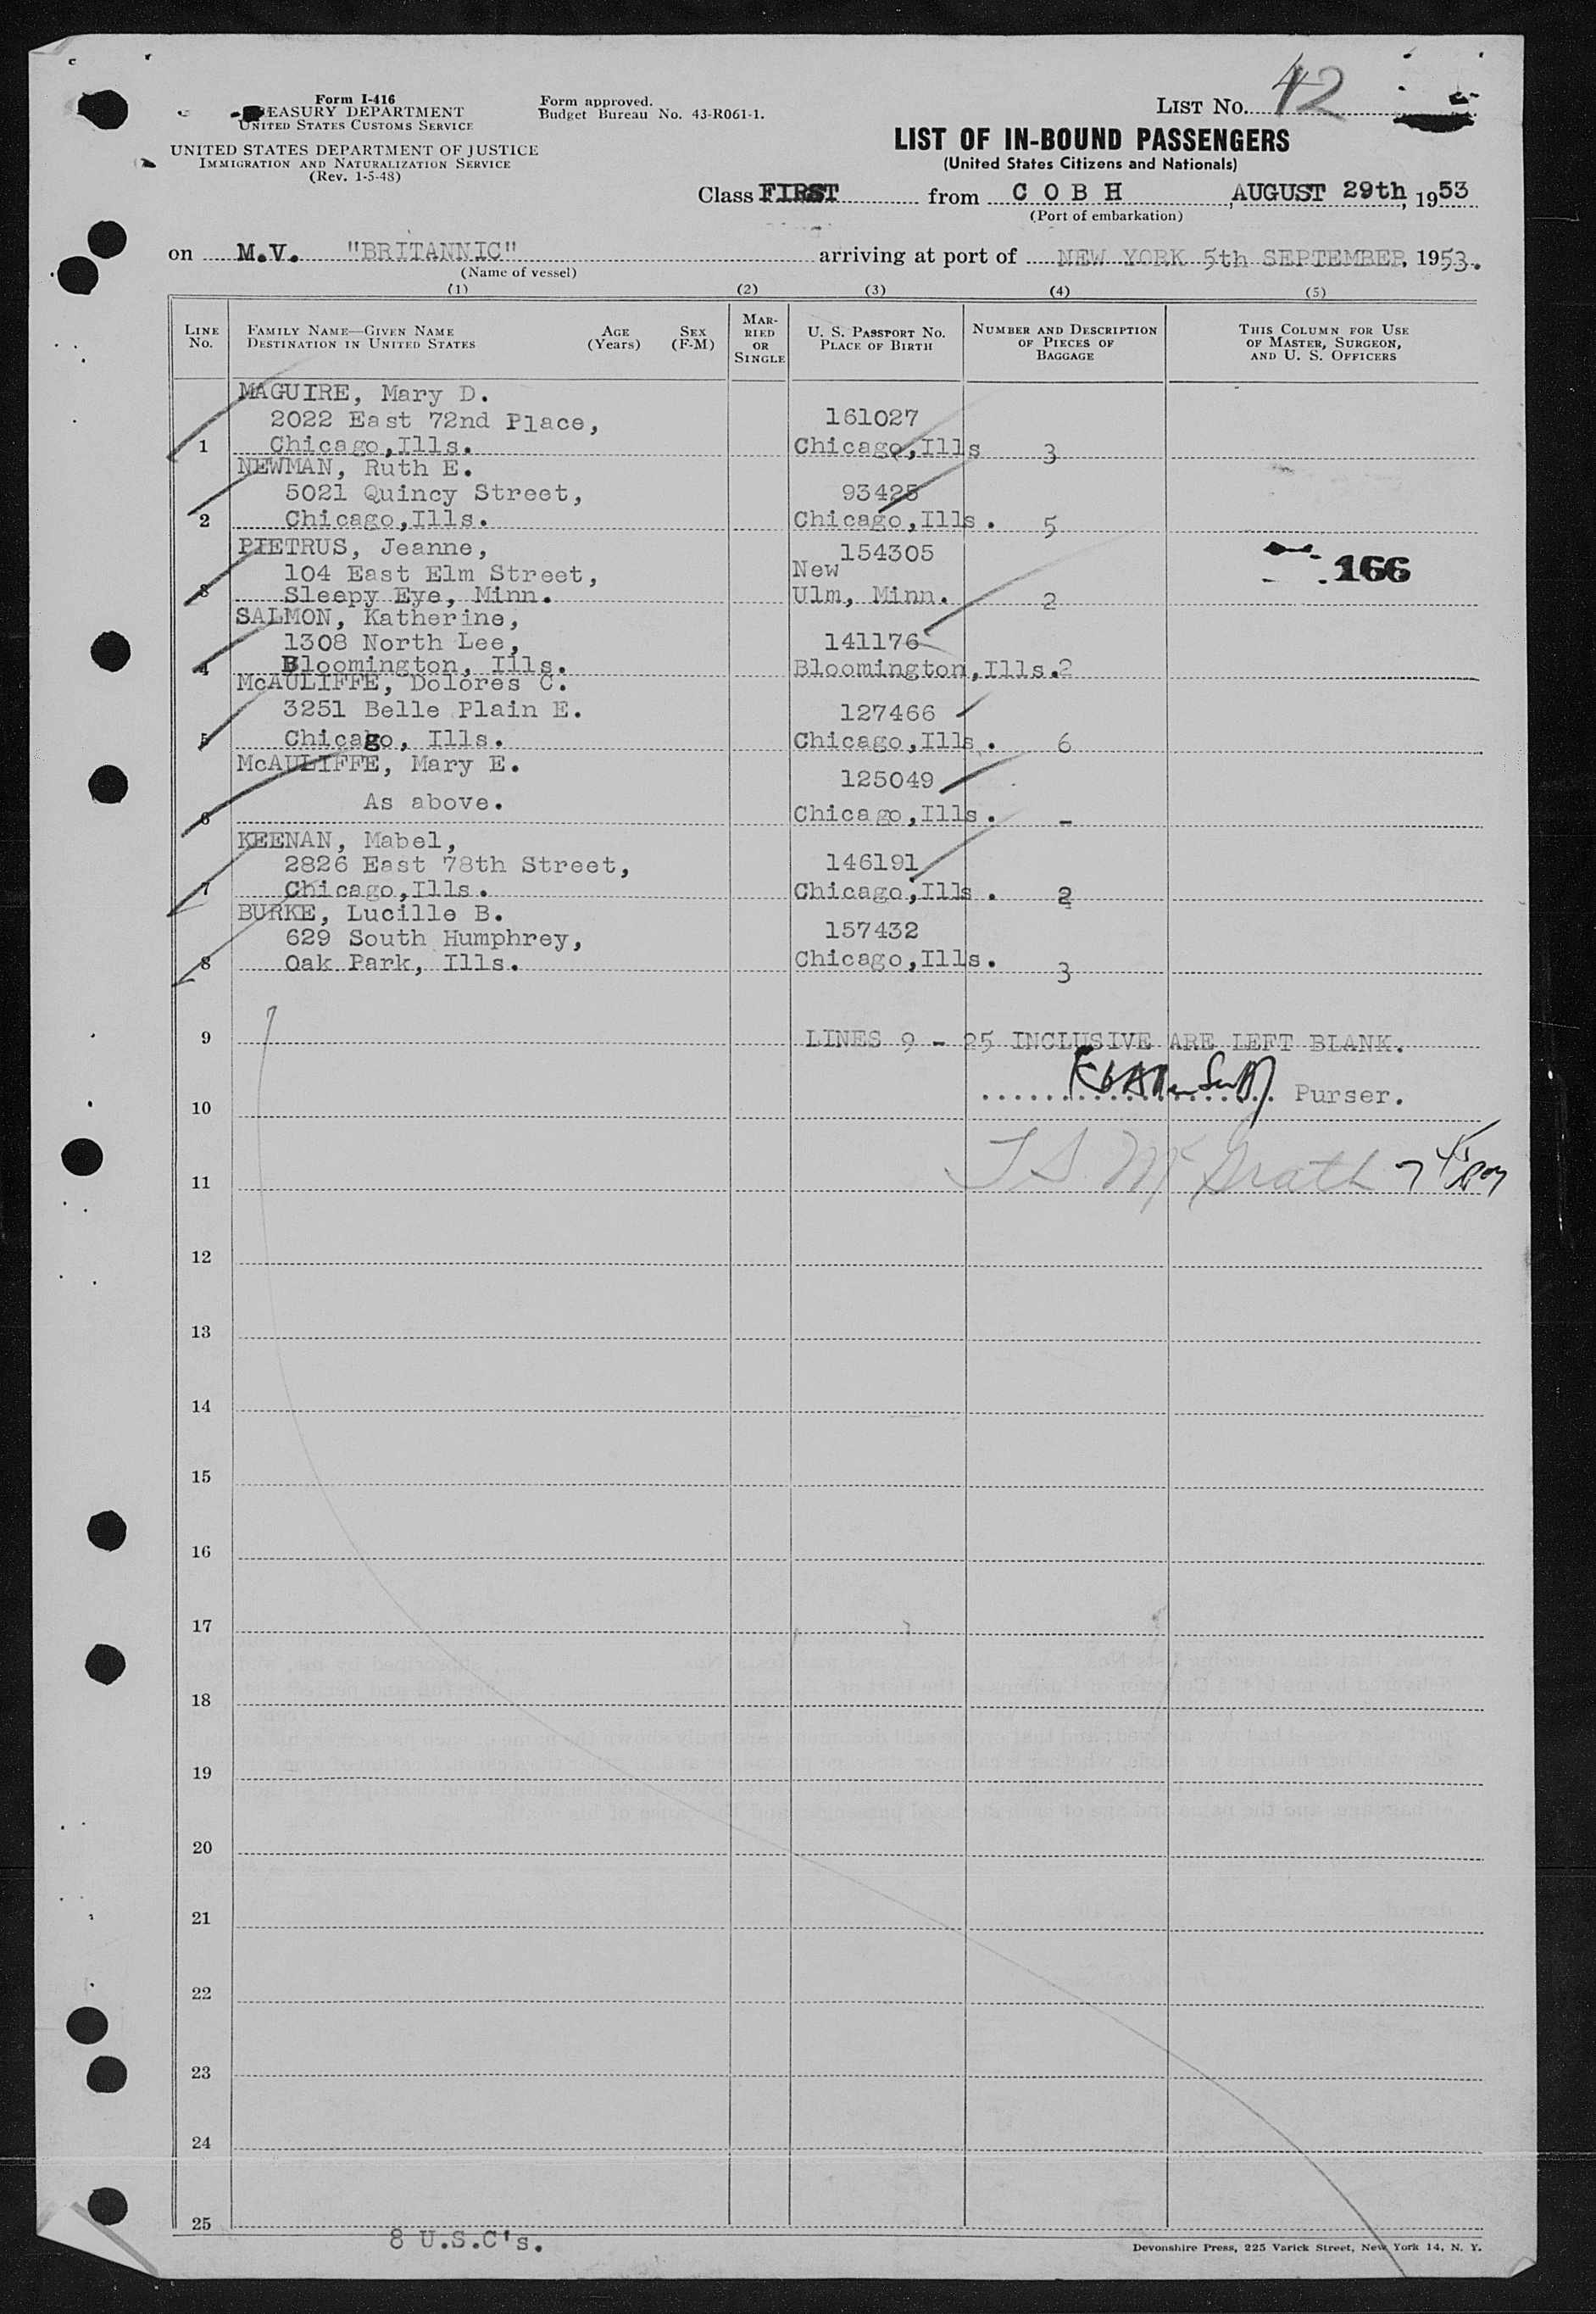 Form I-416
TREASURY DEPARTMENT
UNITED STATES CUSTOMS SERVICE
UNITED STATES DEPARTMENT OF JUSTICE
IMMIGRATION AND NATURALIZATION SERVICE
(Rev. 1-5-48)
Form approved.
Budget Bureau No. 43-R061-1.
LIST NO. 42
LIST OF IN-BOUND PASSENGERS
(United States Citizens and Nationals)
Class FIRST from C O B H, AUGUST 29th, 1953
(Port of embarkation)
on M.V. "BRITANNIC" arriving at port of NEW YORK 5th SEPTEMBER, 1953.
(Name of vessel)
(1) (2) (3) (4) (5)
LINE NO. FAMILY NAME—GIVEN NAME DESTINATION IN UNITED STATES AGE (Years) SEX (F-M) MARRIED OR SINGLE U. S. PASSPORT NO. PLACE OF BIRTH NUMBER AND DESCRIPTION OF PIECES OF BAGGAGE THIS COLUMN FOR USE OF MASTER, SURGEON, AND U. S. OFFICERS
MAGUIRE, Mary D.
2022 East 72nd Place, 161027
1 Chicago,Ills. Chicago,Ills 3
NEWMAN, Ruth E.
5021 Quincy Street, 93425
2 Chicago,Ills. Chicago,Ills. 5
PIETRUS, Jeanne, 154305
104 East Elm Street, New 166
3 Sleepy Eye, Minn. Ulm, Minn. 2
SALMON, Katherine,
1308 North Lee, 141176
4 Bloomington, Ills. Bloomington,Ills. 2
McAULIFFE, Dolores C.
3251 Belle Plain E. 127466
5 Chicago, Ills. Chicago,Ills. 6
McAULIFFE, Mary E. 125049
As above.
6 Chicago,Ills. -
KEENAN, Mabel,
2826 East 78th Street, 146191
7 Chicago,Ills. Chicago,Ills. 2
BURKE, Lucille B.
629 South Humphrey, 157432
8 Oak Park, Ills. Chicago,Ills. 3
9 LINES 9 - 25 INCLUSIVE ARE LEFT BLANK.
10 Purser.
11 T S McGrath
12
13
14
15
16
17
18
19
20
21
22
23
24
25
8 U.S.C's.
Devonshire Press, 225 Varick Street, New York 14, N. Y.